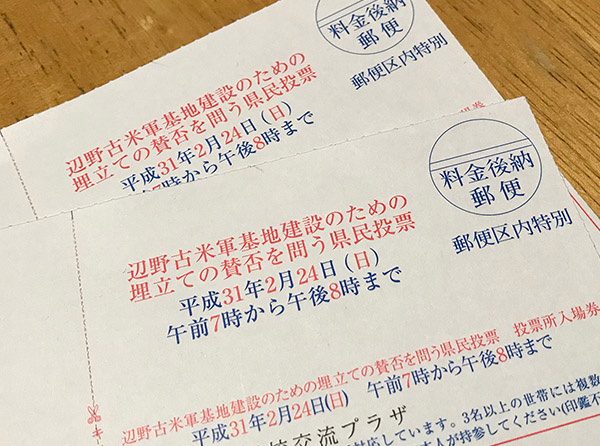 料金後納
郵便
郵便区内特別
辺野古米軍基地建設のための
埋立ての賛否を問う県民投票
平成31年2月24日(日)
7時から午後8時まで
場券
料金後納
郵便
郵便区内特別
辺野古米軍基地建設のための
埋立ての賛否を問う県民投票
平成31年2月24日(日)
午前7時から午後8時まで
辺野古米軍基地建設のための埋立ての賛否を問う県民投票 投票所入場券
平成31年2月24日(日) 午前7時から午後8時まで
交流プラザ
対応しています。3名以上の世帯には複数
人が持参してください(印鑑不
キ